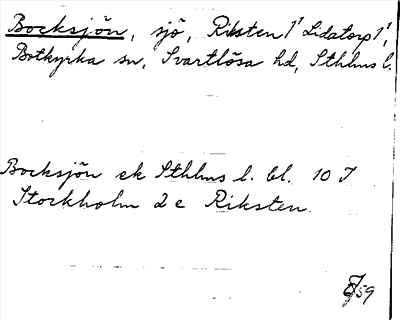 Bocksjön, sjö, Riksten 1' Lidatorp 1',
Botkyrka sn, Svartlösa hd, Sthlms l.
Bocksjön ek Sthlms l. bl. 10 I
Stockholm 2 e Riksten.
59